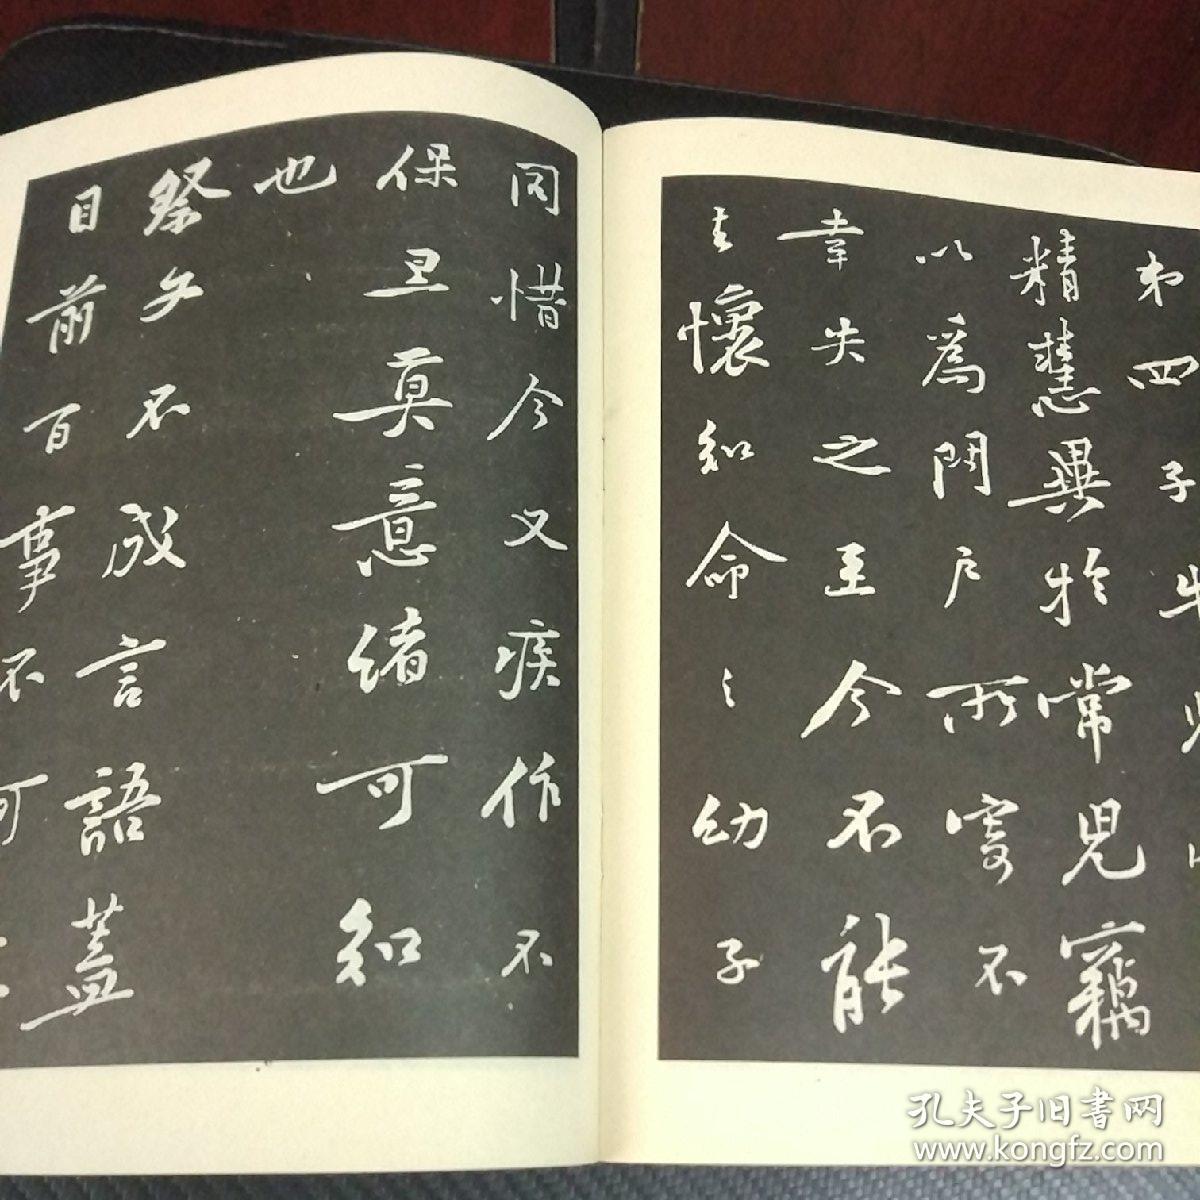 弟四子牛兒
精慧異於常兒竊
以為門户所寄不
幸失之至今不能
去懷知命之幼子
同惜今又疾作不
保旦莫意緒可知
也
祭文不成言語蓋
目前百
事不可
孔夫子旧書网
www.kongfz.com